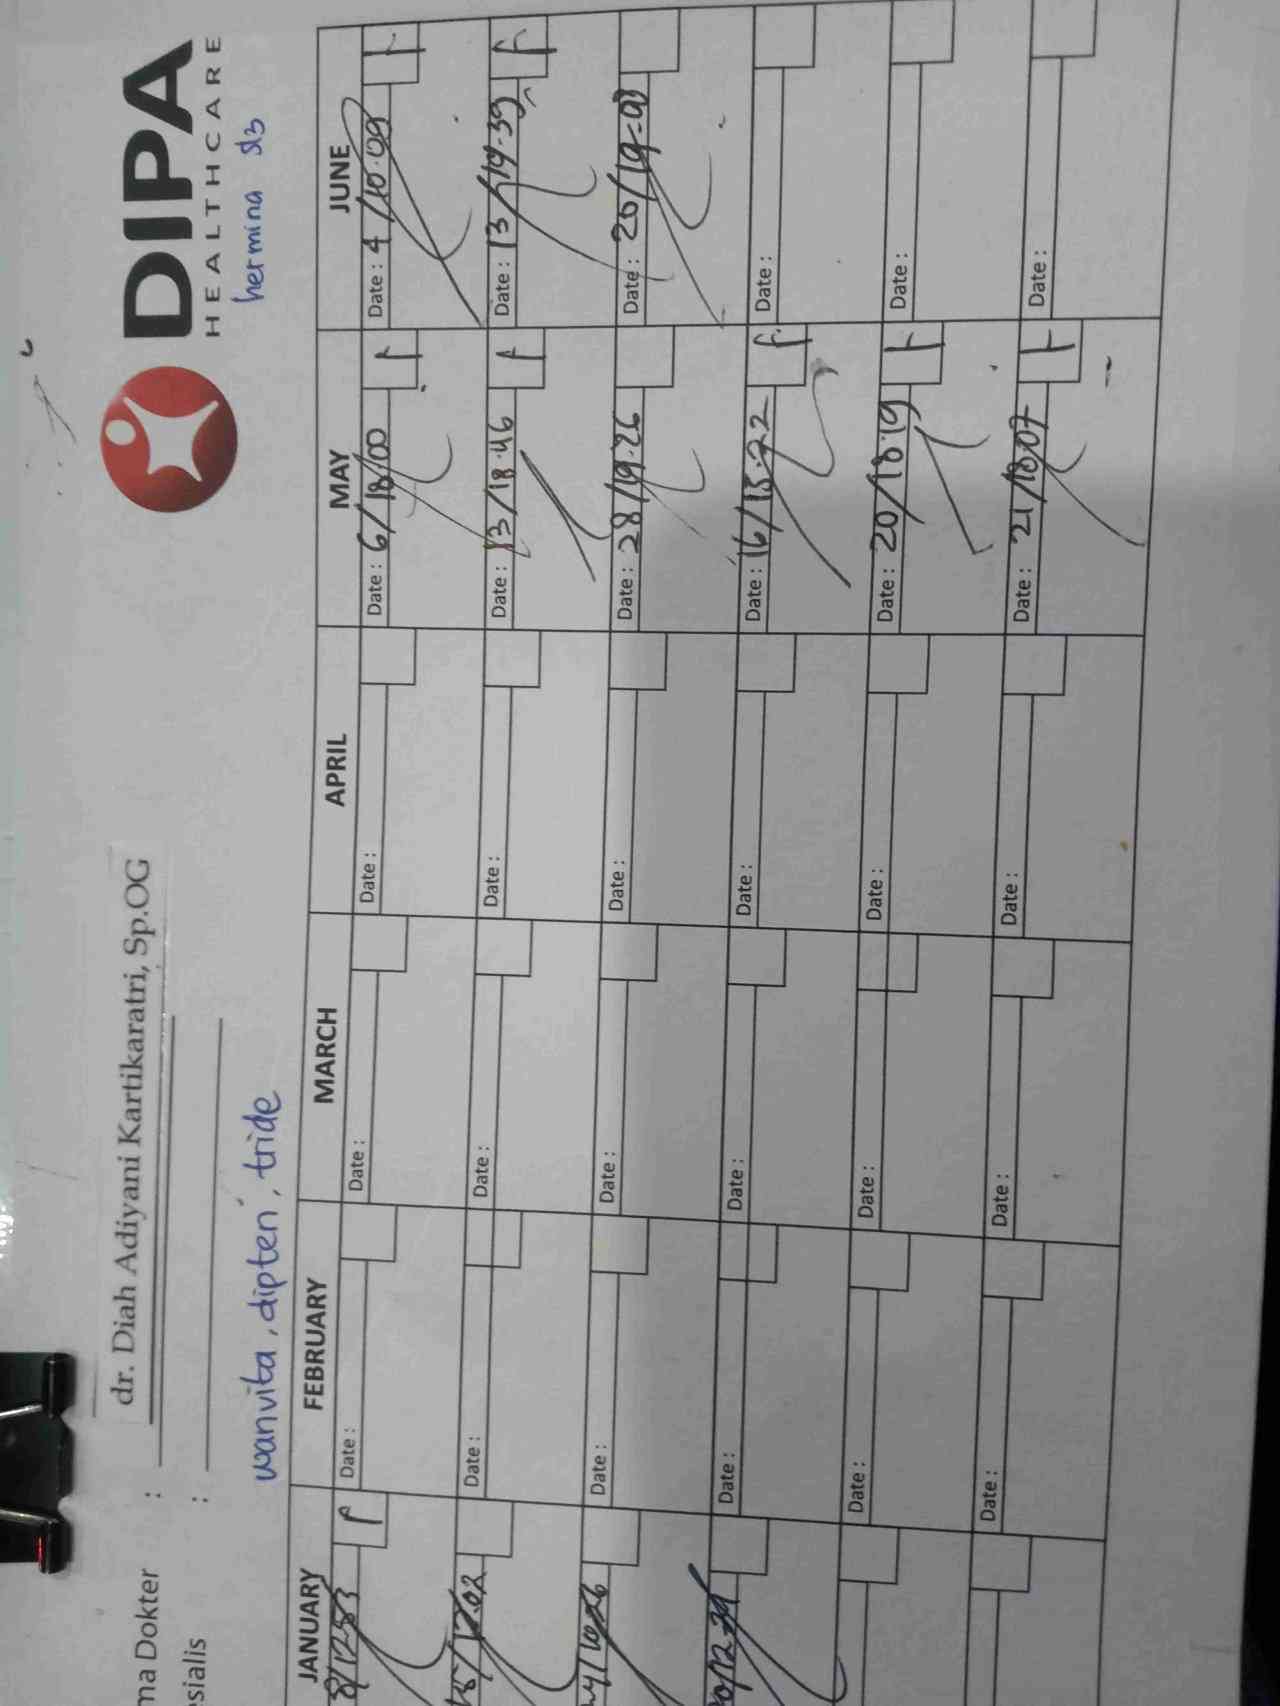 DIPA
HEALTHCARE
hermina
ma Dokter : dr. Diah Adiyani Kartikaratri, Sp.OG
esialis :
wanvita, dipten, tride
JANUARY FEBRUARY MARCH APRIL MAY JUNE
8/12-53 Date : Date : Date : Date : 6/18.00 Date : 4/10.09
Date : Date : Date : Date : 13/18.46 Date : 13/19-39
Date : Date : Date : Date : 28/19.26 Date : 20/19-
Date : Date : Date : Date : 16/ Date :
Date : Date : Date : Date : 20/18.19 Date :
Date : Date : Date : Date : 21/18.07 Date :